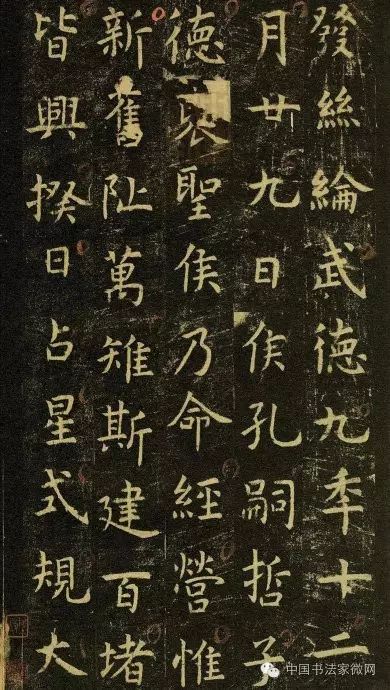 發絲綸武德九秊十二
月廿九日侯孔嗣哲子
德褒聖侯乃命經營惟
新舊阯萬雉斯建百堵
皆興揆日占星式規大
中国书法家微网